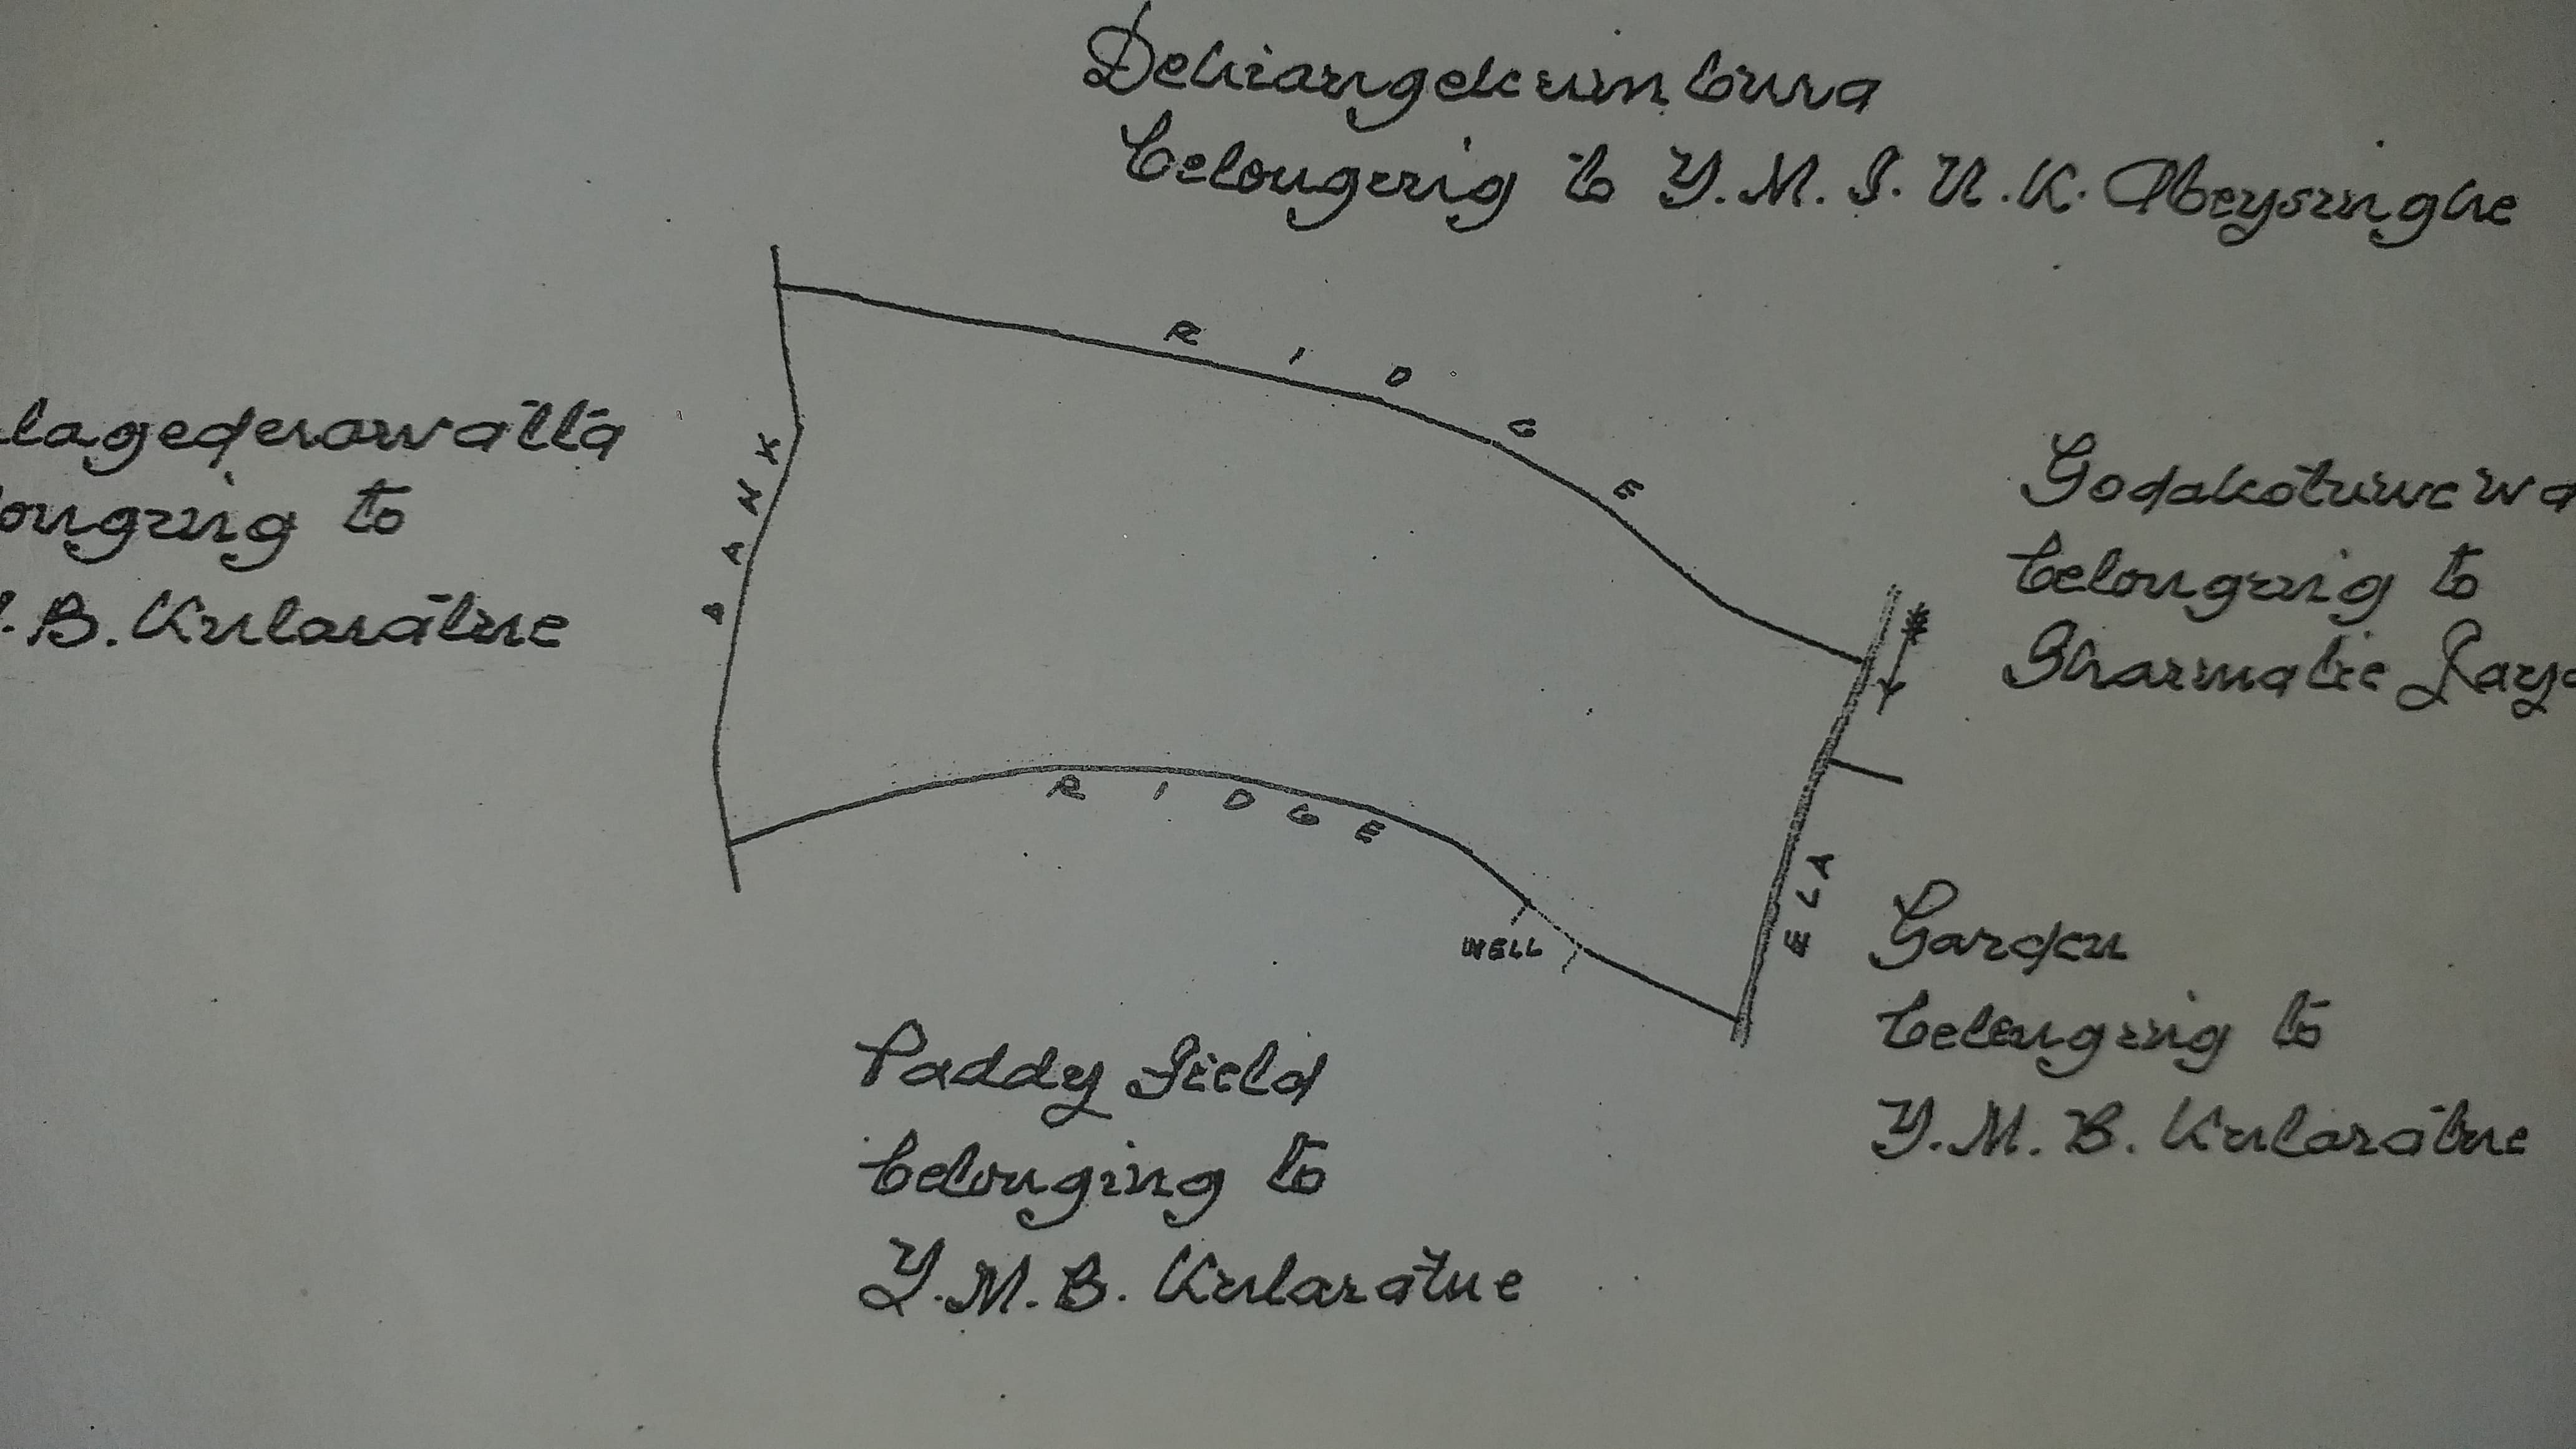 Dehiangekumbura
belonging to Y.M.S.U.K. Abeysinghe
RIDGE
BANK
lagederawatta
longing to
.B. Kularatne
Godakotuwewa
belonging to
Sharmalie Jaya
RIDGE
WELL
ELA
Garden
belonging to
Y.M.B. Kularatne
Paddy Field
belonging to
Y.M.B. Kularatne